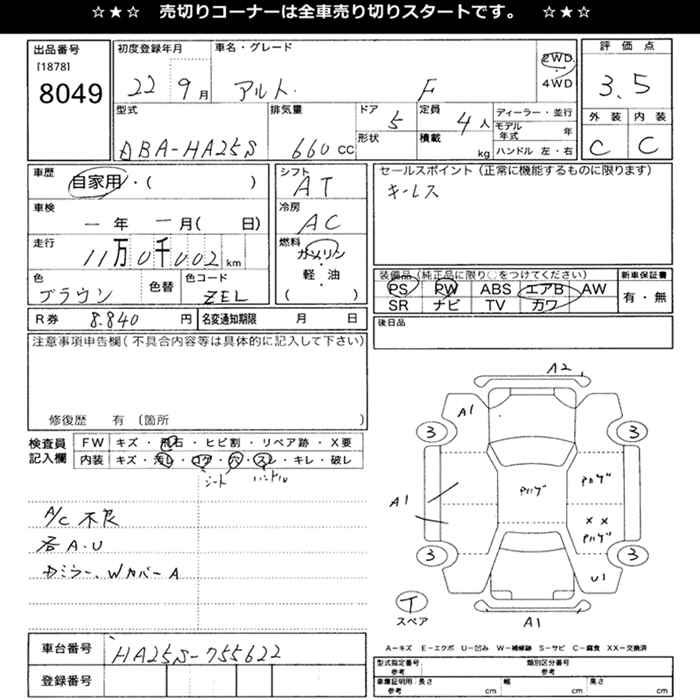 ☆★☆ 売切りコーナーは全車売り切りスタートです。 ☆★☆
出品番号 [1878] 8049
初度登録年月 22 9月
車名・グレード アルト F
2WD・4WD
評価点 3.5
外装 内装
C C
型式 DBA-HA25S
排気量 660 CC
ドア 5
形状
定員 4人
積載 kg
ディーラー・並行
モデル年式 年
ハンドル 左・右
車歴 自家用・( )
シフト AT
セールスポイント (正常に機能するものに限ります)
キーレス
車検 一年 一月( 日)
冷房 AC
走行 11万0千002 km
燃料 ガソリン・軽・油 ( )
色 ブラウン 色替
色コード ZEL
装備品 (純正品に限り○をつけてください)
PS PW ABS エアB AW
SR ナビ TV カワ
新車保証書 有・無
R券 8.840 円
名変通知期限 月 日
後日品
注意事項申告欄(不具合内容等は具体的に記入して下さい)
修復歴 有 (箇所 )
検査員記入欄
FW キズ・飛石・ヒビ割・リペア跡・X要
内装 キズ・汚レ・コゲ・穴・スレ・キレ・破レ
シート ハンドル
A/C 不良
各A.U
ドアミラー、Wカバー A
A2
A1
3 3
A1
Pハゲ
Pハゲ
××
Pハゲ
3 3
U1
T
スペア
A1
A-キズ E-エクボ U-凹み W-補修跡 S-サビ C-腐食 XX-交換済
車台番号 HA25S-755622
登録番号
型式指定番号 参考
類別区分番号 参考
車庫証明用 参考
長さ cm 幅 cm 高さ cm